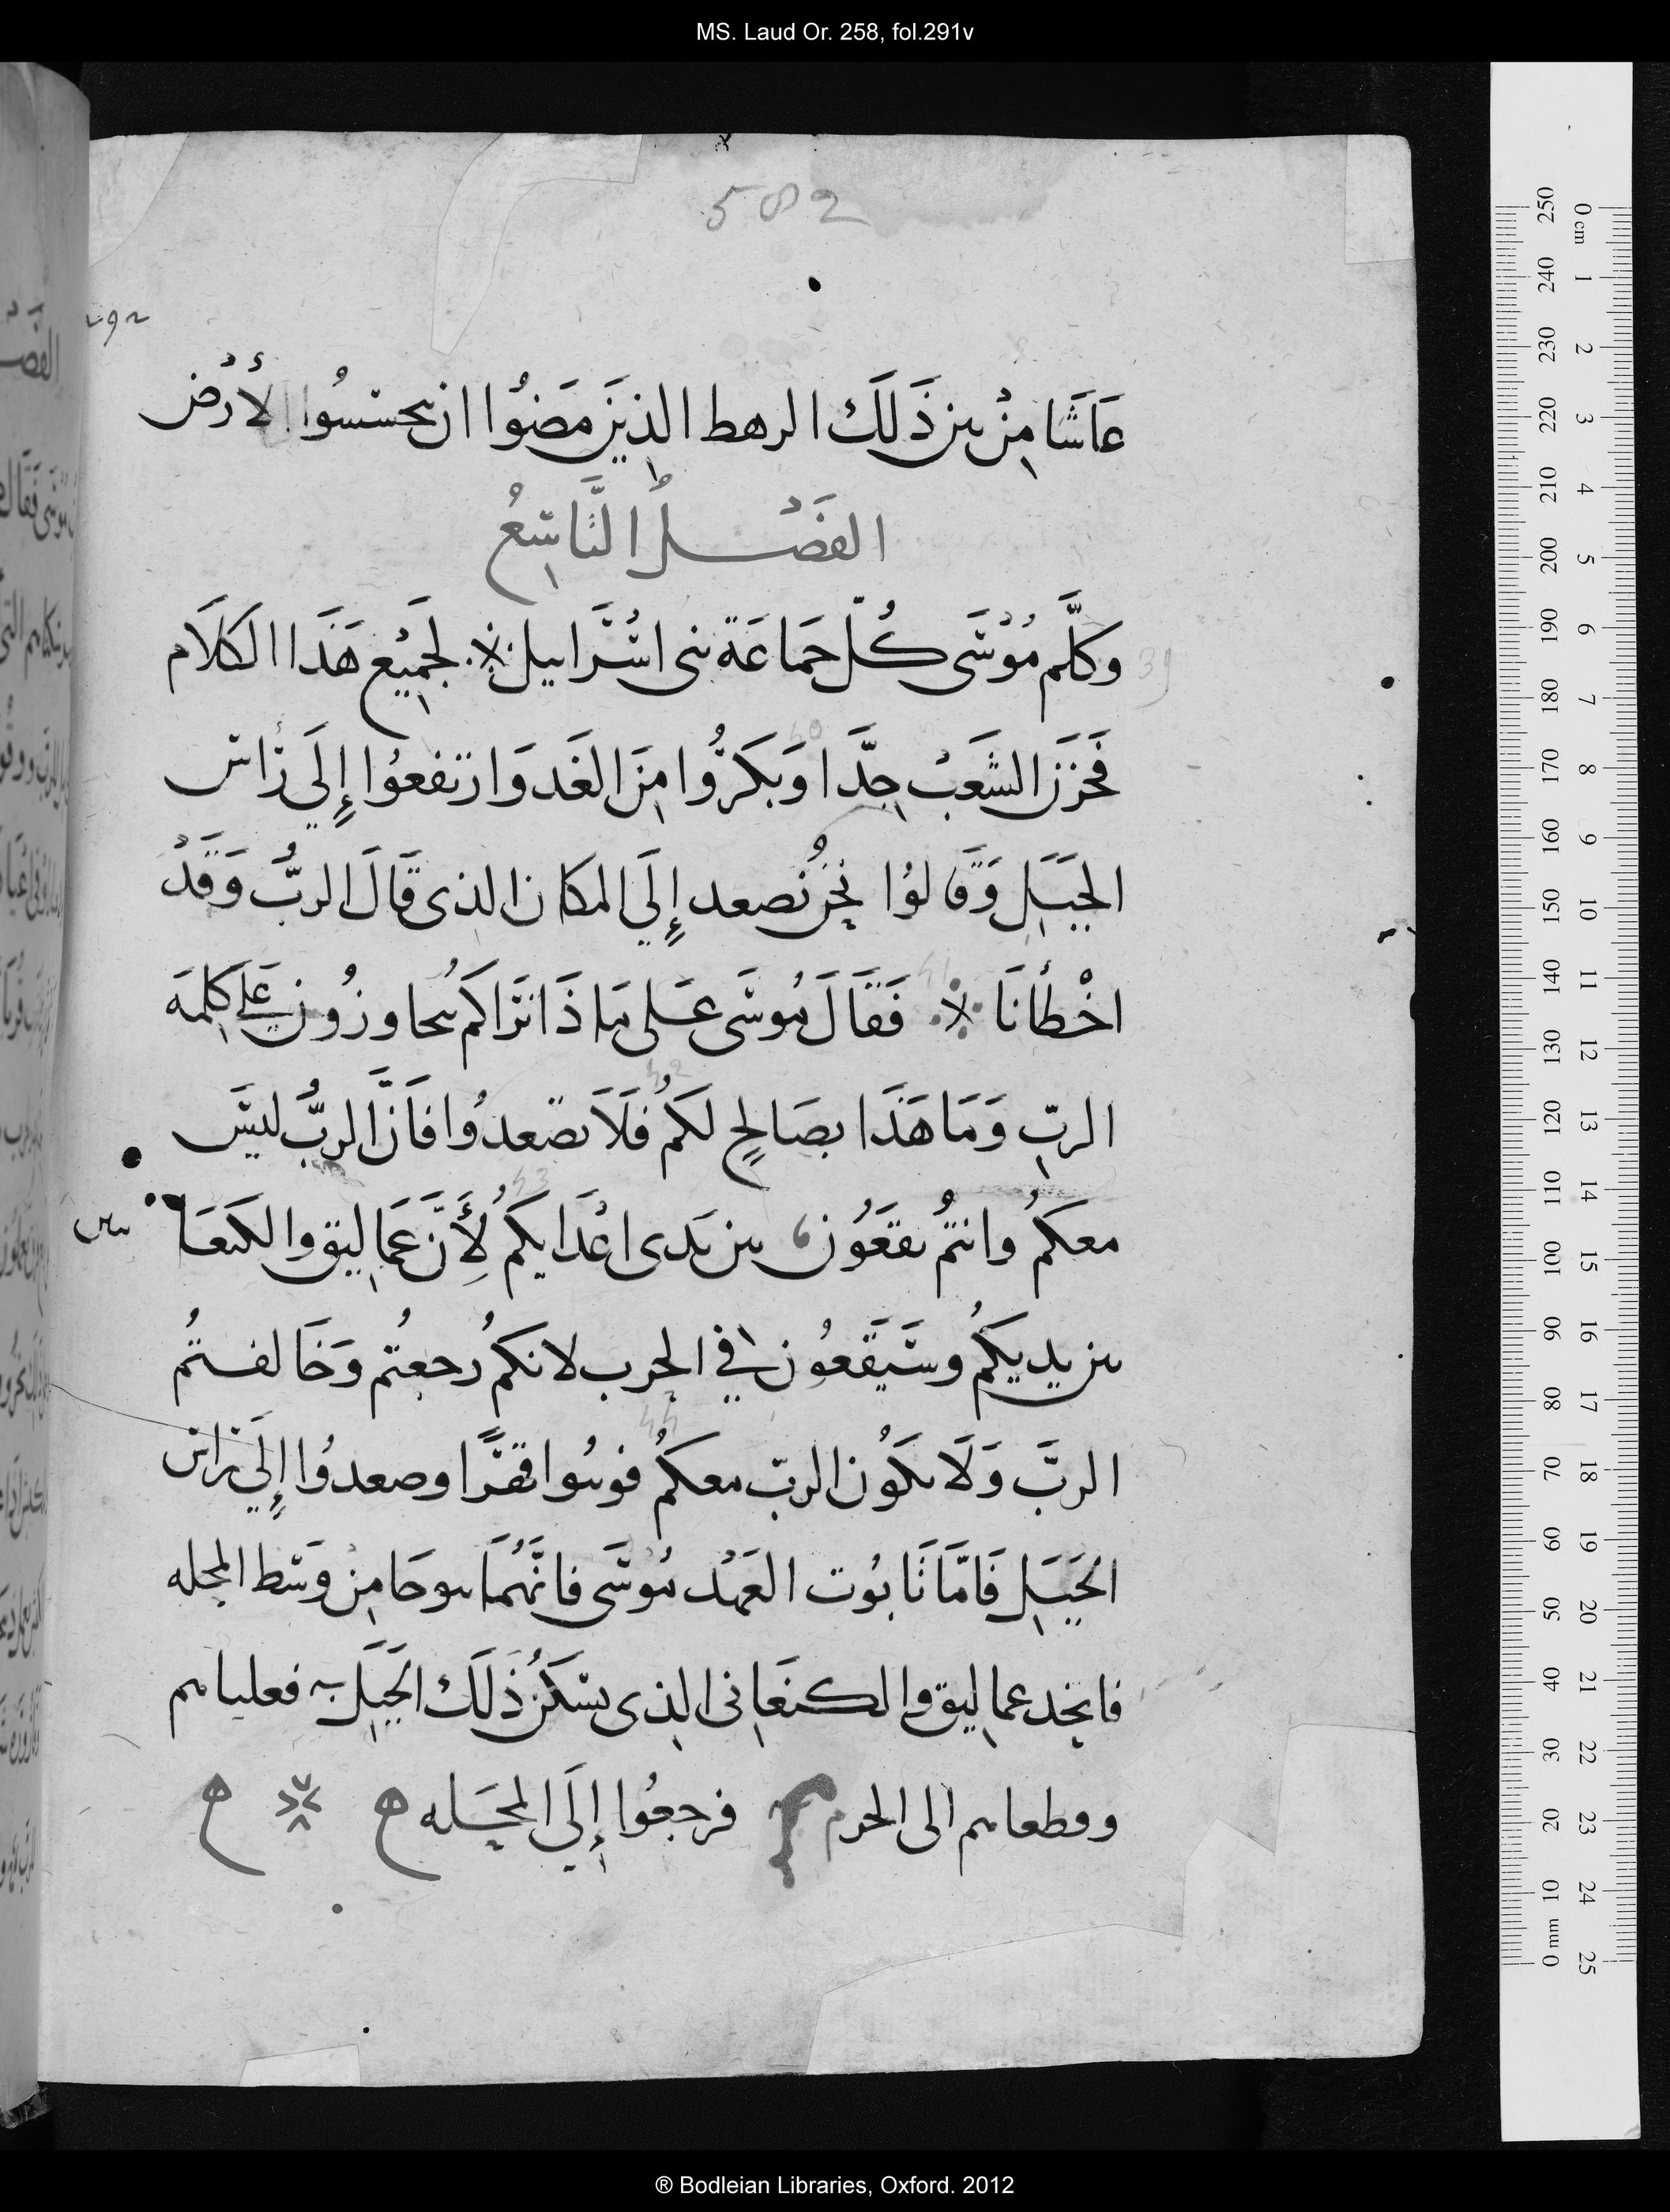 MS. Laud Or. 258, fol.291v
582
292
عَاشَا مِنْ بين ذَلَك الرهط الذِينَ مَضَوُا ان يحسسُوا الأرْض
الفَصْلُ التَّاسِعُ
وكلَّم مُوْسَى كُلّ جَمَاعَة بنى اسْرَاييل لجَمِيْع هَذَا الكَلَام
39
فَحزنَ الشَعَبْ جِدَّا وَبَكَرُّوا مِنَ الغَد وَارتفعُوا إِلَي رَاس
40
الجَبَلِ وَقَالوُا نحْنُ نصعد إِلَي المكان الذى قَالَ الربُّ وَقَدْ
اخْطأنَا فَقَالَ مُوسَى عَلى مَا ذَا نَرَاكُم تُجاوزُون عَلَى كَلِمَه
41
الربِّ وَمَا هَذَا بصَالحٍ لكَمُ فَلَا تصَعدوُا فَانَّ الربُّ ليسَ
42
معكمُ وانتمُ تقعَوُن بين يَدى اعْدَايكمُ لأَنَّ عَمَاليق والكَنعَا
نيين
43
بين يديكمُ وسَيَقَعوُن في الحرب لانكمُ رجعتُم وَخَالفتمُ
الربَّ وَلَا يكَوُن الربّ معكمُ فوثبوا قفزًا وصعدوُا إِلَي رَاس
44
الجَبَلِ فَامَّا تَابوُت العَهْد وموسَى فانَّهُمَا لم يبرحَا مِن وَسَط المحله
فانحدر عماليق والكنعَانى الذِى يسَكنُ ذَلَك الجَبَلِ فغلباهم
وقطعاهم الى الحرم فرجعُوا إِلَي المحَله
0 cm 1 2 3 4 5 6 7 8 9 10 11 12 13 14 15 16 17 18 19 20 21 22 23 24 25
250 240 230 220 210 200 190 180 170 160 150 140 130 120 110 100 90 80 70 60 50 40 30 20 10 0 mm
® Bodleian Libraries, Oxford. 2012